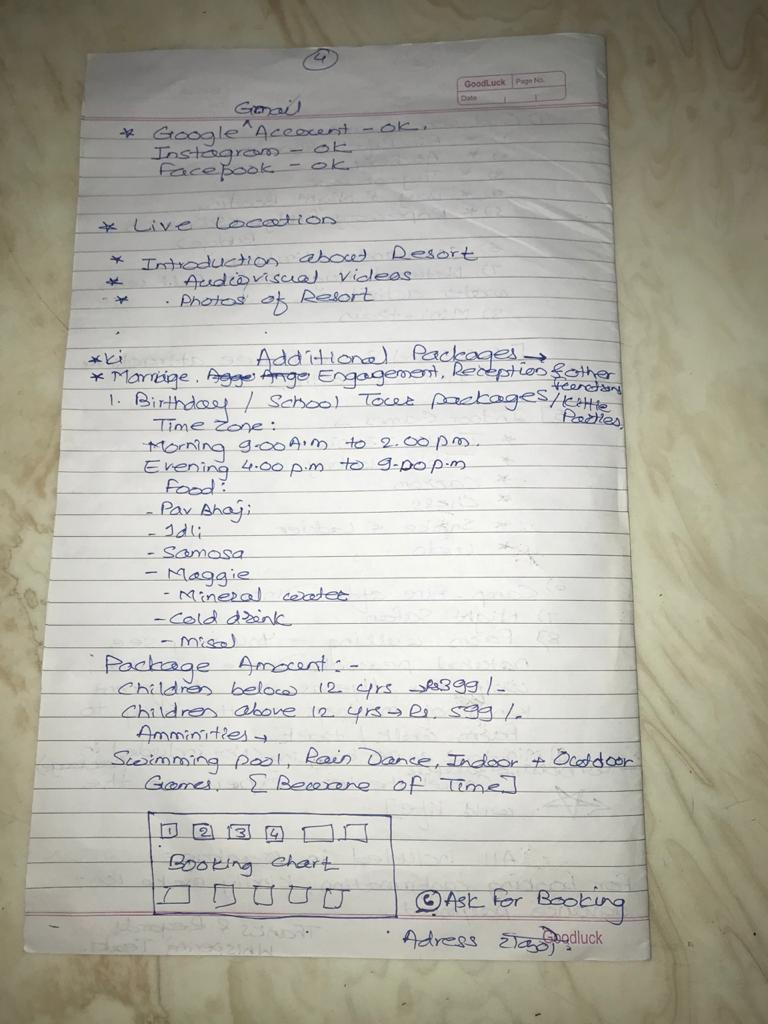 4
GoodLuck Page No.
Date
Gmail
* Google ^ Account - ok.
Instagram - ok
Facebook - ok
* Live Location
* Introduction about Resort
* Audiovisual videos
* . Photos of Resort
*Ki Additional Packages →
* Marriage, Engagement, Reception & other
functions
1. Birthday / School Tour packages / Kittie
Parties.
Time Zone:
Morning 9.00 A.m to 2.00 p.m.
Evening 4.00 p.m to 9.00 p.m
Food:
- Pav Bhaji
- Idli
- Samosa
- Maggie
- Mineral water
- Cold drink
- Misal
Package Amount :-
Children below 12 yrs → Rs 399/-
Children above 12 yrs → Rs. 599/-
Amminities →
Swimming pool, Rain Dance, Indoor + Outdoor
Games. [Beware of Time]
1 2 3 4
Booking Chart
6 Ask For Booking
Adress
Goodluck